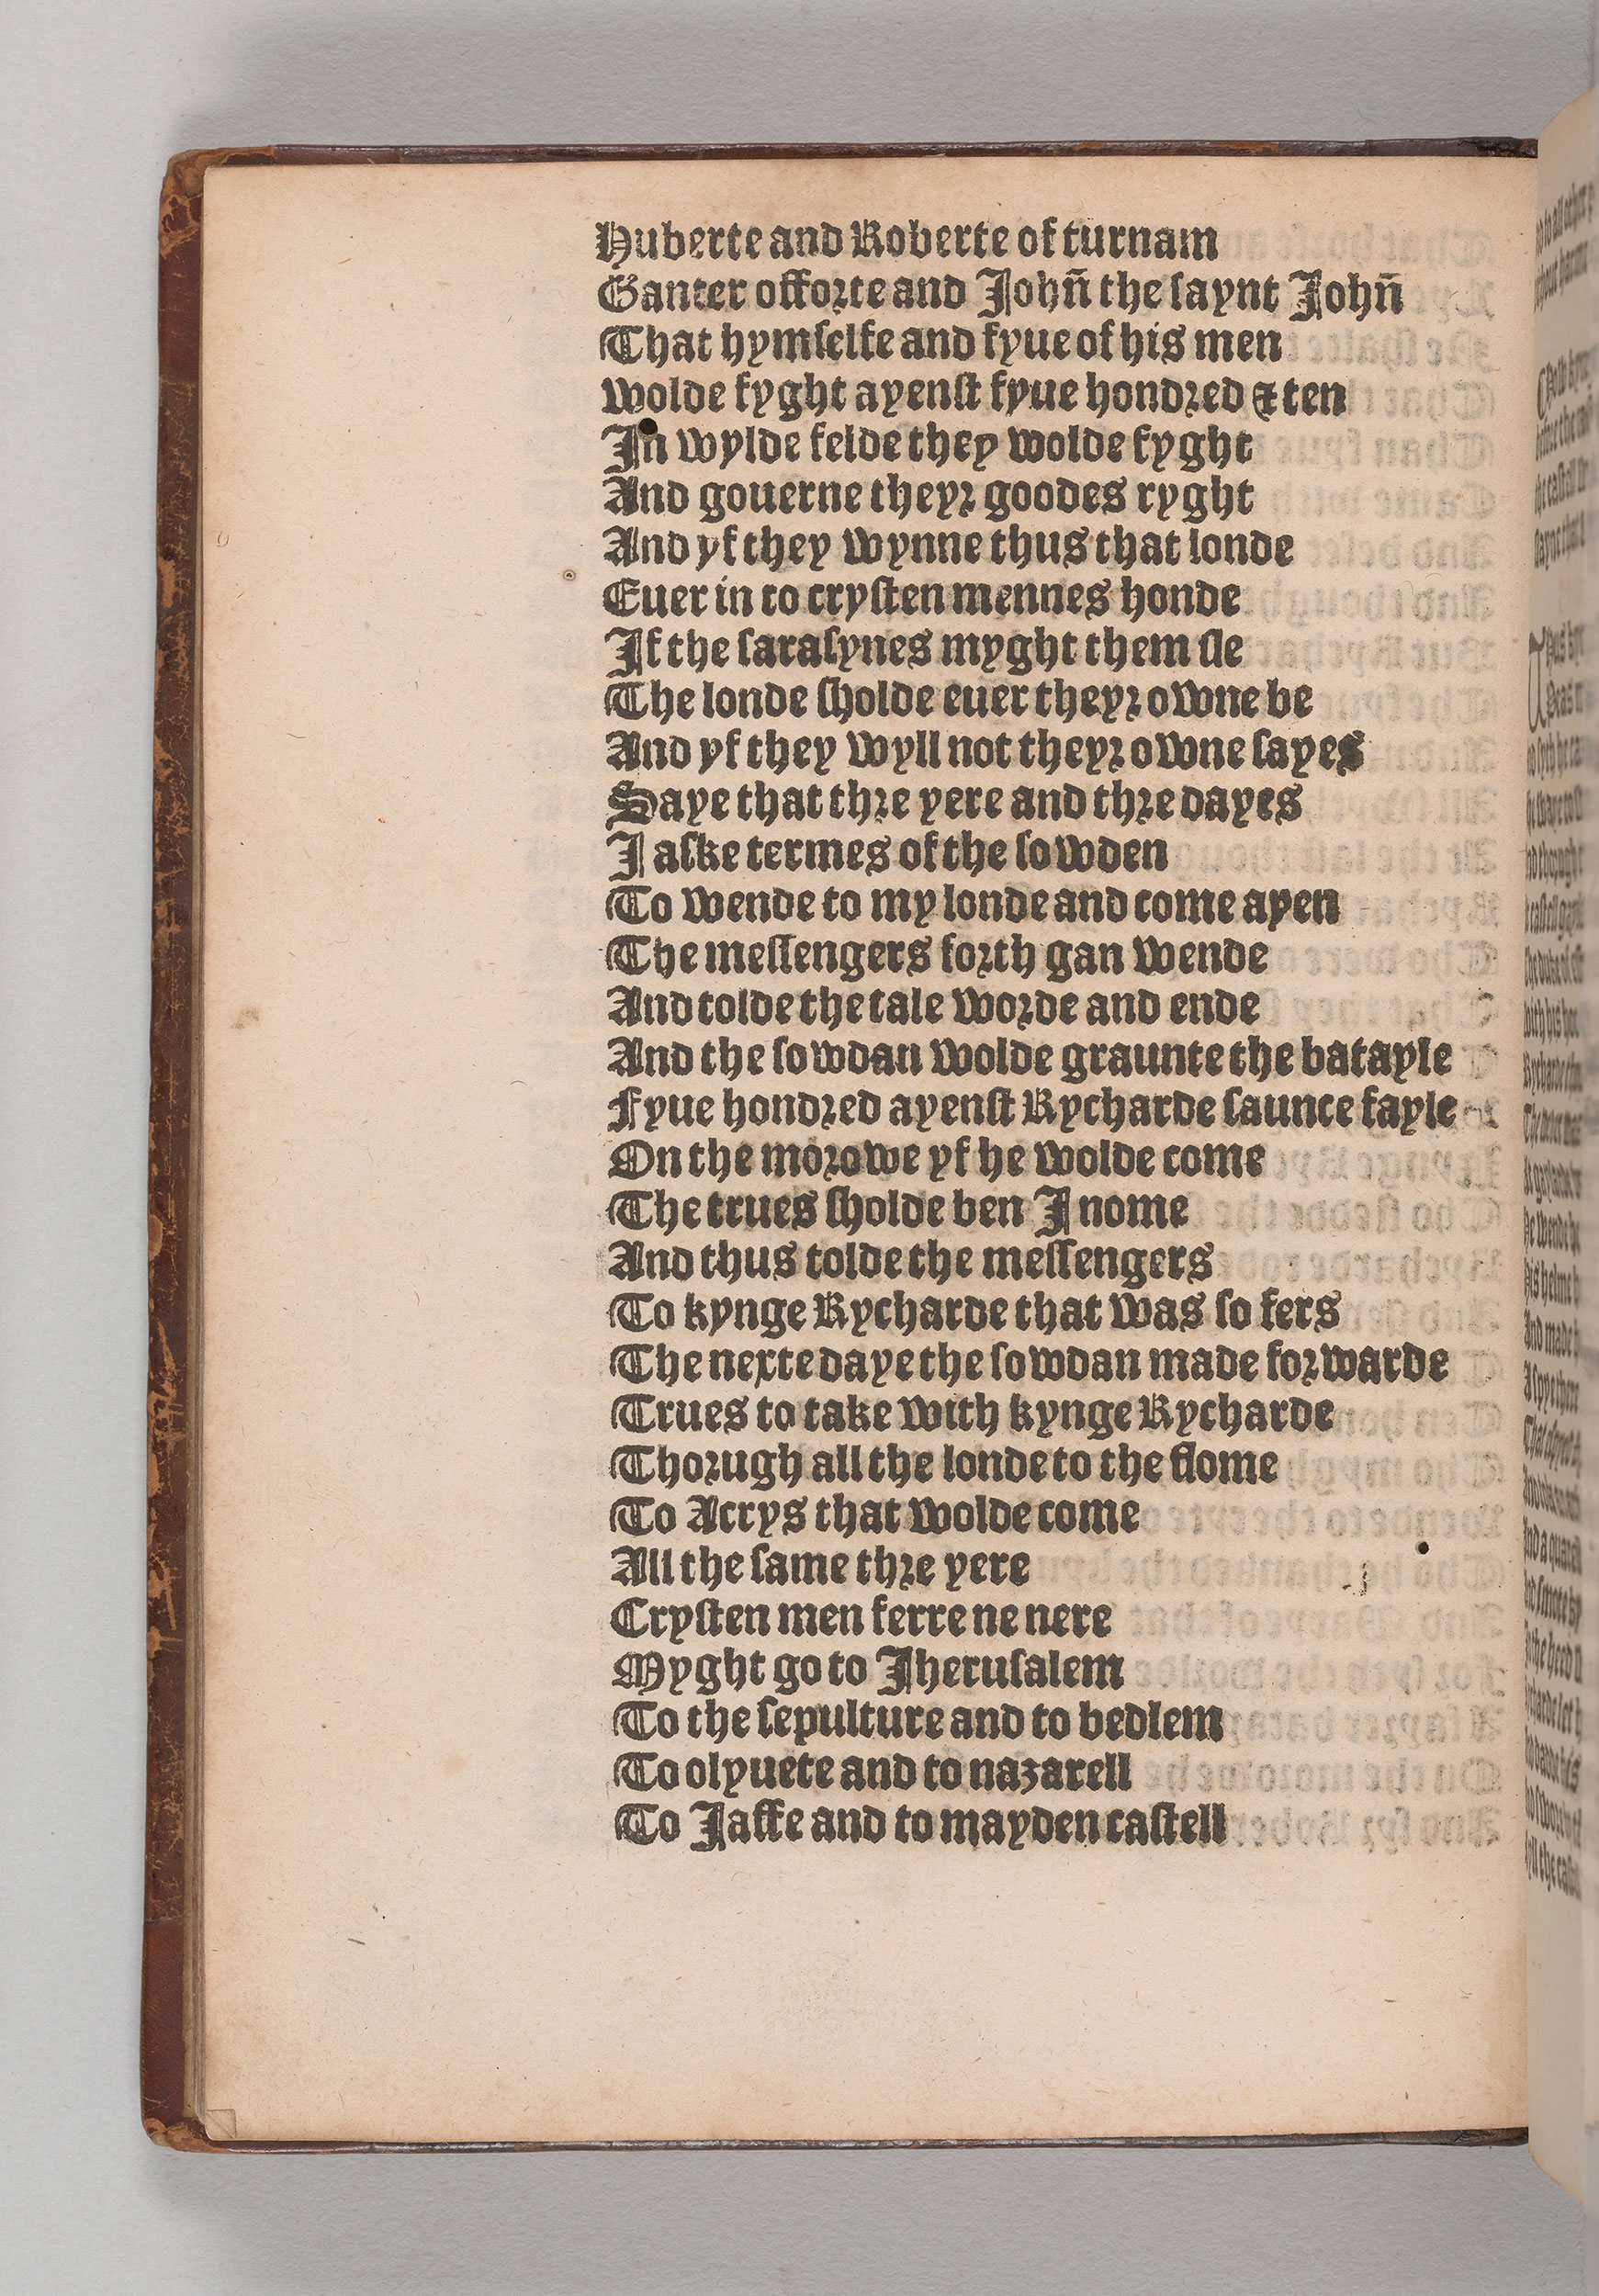 Huberte and Roberte of turnam
Ganter offorte and Johñ the saynt Johñ
That hymselfe and fyue of his men
Wolde fyght ayenst fyue hondred & ten
In wylde felde they wolde fyght
And gouerne theyr goodes ryght
And yf they wynne thus that londe
Euer in to crysten mennes honde
If the sarasynes myght them sle
The londe sholde euer theyr owne be
And yf they wyll not theyr owne sayes
Saye that thre yere and thre dayes
I aske termes of the sowden
To wende to my londe and come ayen
The messengers forth gan wende
And tolde the tale worde and ende
And the sowdan wolde graunte the batayle
Fyue hondred ayenst Rycharde saunce fayle
On the morowe yf he wolde come
The trues sholde ben I nome
And thus tolde the messengers
To kynge Rycharde that was so fers
The nexte daye the sowdan made forwarde
Trues to take with kynge Rycharde
Thorugh all the londe to the flome
To Acrys that wolde come
All the same thre yere
Crysten men ferre ne nere
Myght go to Jherusalem
To the sepulture and to bedlem
To olyuete and to nazarell
To Jaffe and to mayden castell